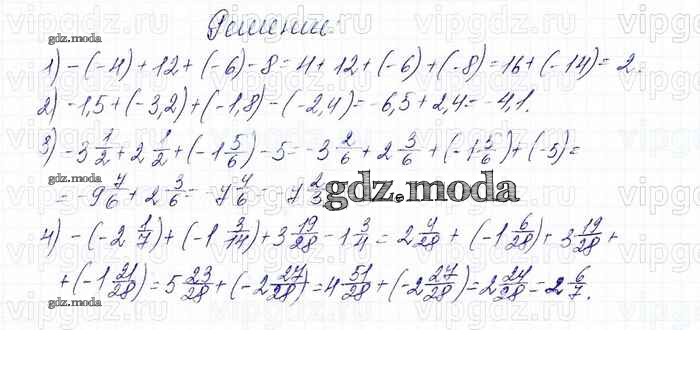 Решение:
1) -(-4)+12+(-6)-8=4+12+(-6)+(-8)=16+(-14)=2.
2) -1,5+(-3,2)+(-1,8)-(-2,4)=-6,5+2,4=-4,1.
3) -3 1/2+2 1/2+(-1 5/6)-5=-3 2/6+2 3/6+(-1 5/6)+(-5)=
=-9 7/6+2 3/6=-7 4/6=-7 2/3
4) -(-2 1/7)+(-1 3/14)+3 19/28-1 3/4=2 4/28+(-1 6/28)+3 19/28+
+(-1 21/28)=5 23/28+(-2 27/28)=4 51/28+(-2 27/28)=2 24/28=2 6/7.
gdz.moda
vipgdz.ru